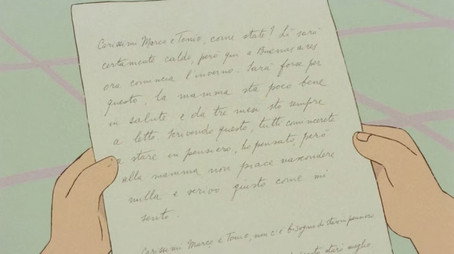 Carissimi Marco e Tonio, come state? Lì sarà
certamente caldo, però qui a Buenos Aires
ora comincia l'inverno. Sarà forse per
questo, la mamma sta poco bene
in salute e da tre mesi sto sempre
a letto. Scrivendo questo, tutti comincerete
a stare in pensiero, ho pensato, però
alla mamma non piace nascondere
nulla e scrivo giusto come mi
sento.
Carissimi Marco e Tonio, non c'è bisogno di stare in pensiero
starò meglio